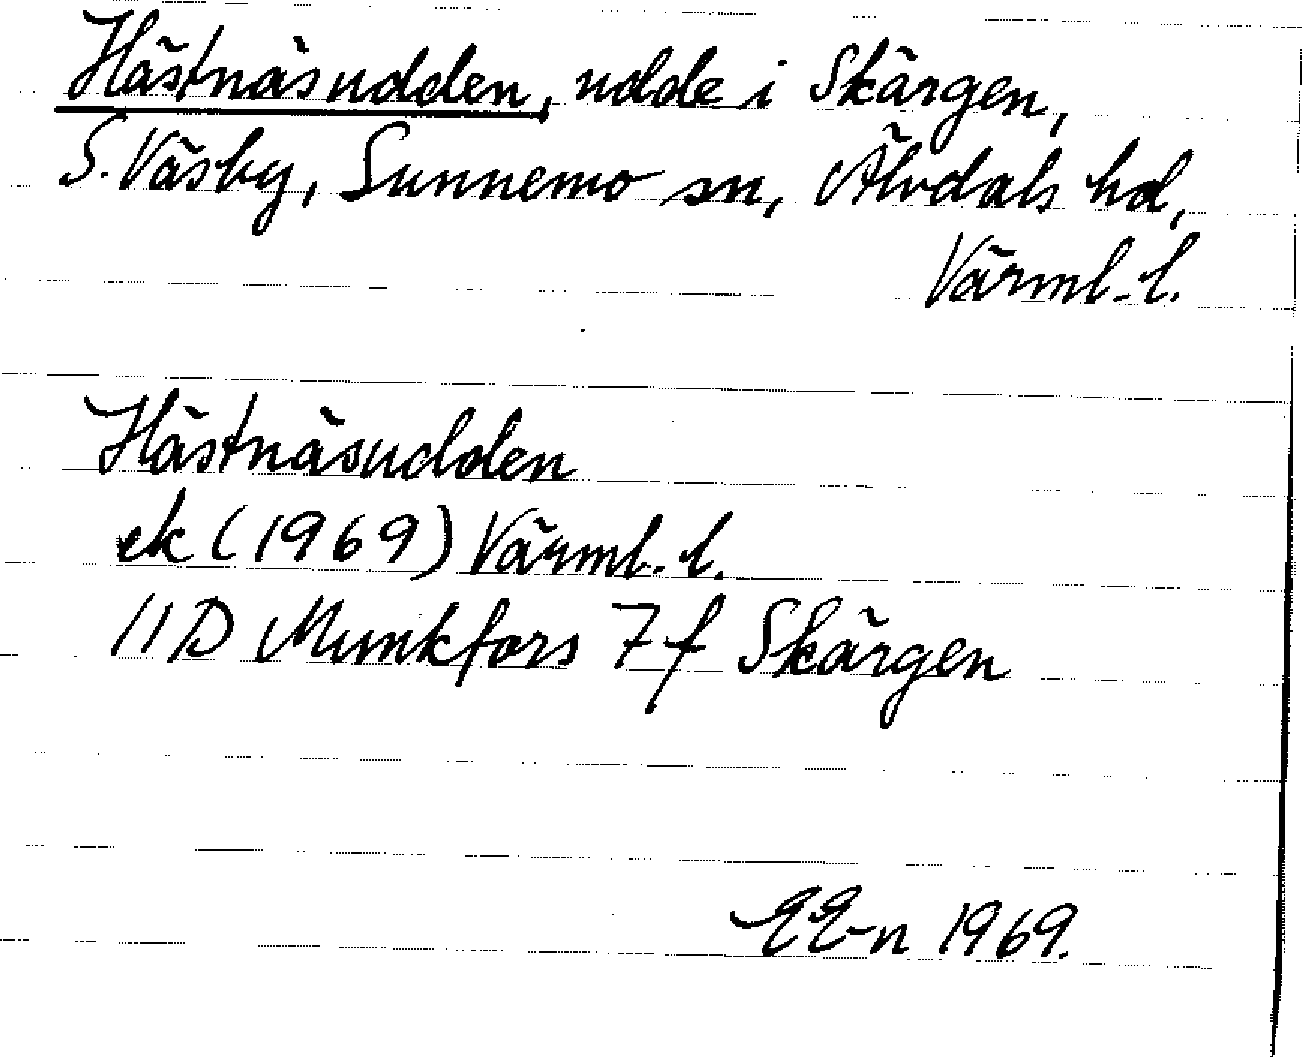 Hästnäsudden, udde i Skärgen,
S. Väsby, Sunnemo sn, Älvdals hd,
Värml. l.
Hästnäsudden
ek (1969) Värml. l.
11D Munkfors 7 f Skärgen
EE-n 1969.